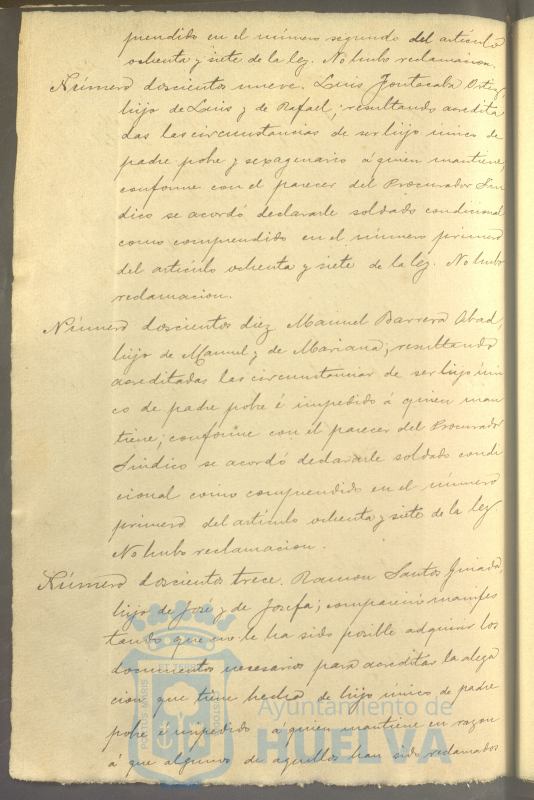 prendido en el número segundo del artículo
ochenta y siete de la ley. No hubo reclamacion.
Número doscientos nueve. Luis Ortiz,
hijo de Luis y de Rafael; resultando acredita
das las circunstancias de ser hijo único de
padre pobre y sexagenario á quien mantiene,
conforme con el parecer del Procurador Sín
dico se acordó declararle soldado condicional
como comprendido en el número primero
del artículo ochenta y siete de la ley. No hubo
reclamacion.
Número doscientos diez Manuel Barrera Abad,
hijo de Manuel y de Mariana; resultando
acreditadas las circunstancias de ser hijo úni
co de padre pobre é impedido á quien man
tiene; conforme con el parecer del Procurador
Síndico se acordó declararle soldado condi
cional como comprendido en el número
primero del artículo ochenta y siete de la ley
No hubo reclamacion.
Número doscientos trece. Ramon Santos
hijo de José y de Josefa; compareció manifes
tando que no le ha sido posible adquirir los
documentos necesarios para acreditar la alega
cion que tiene hecha de hijo único de padre
pobre é impedido á quien mantiene en razon
á que algunos de aquellos han sido reclamados
PORTUS MARIS ET TERRAE CUSTODIA
Ayuntamiento de
HUELVA